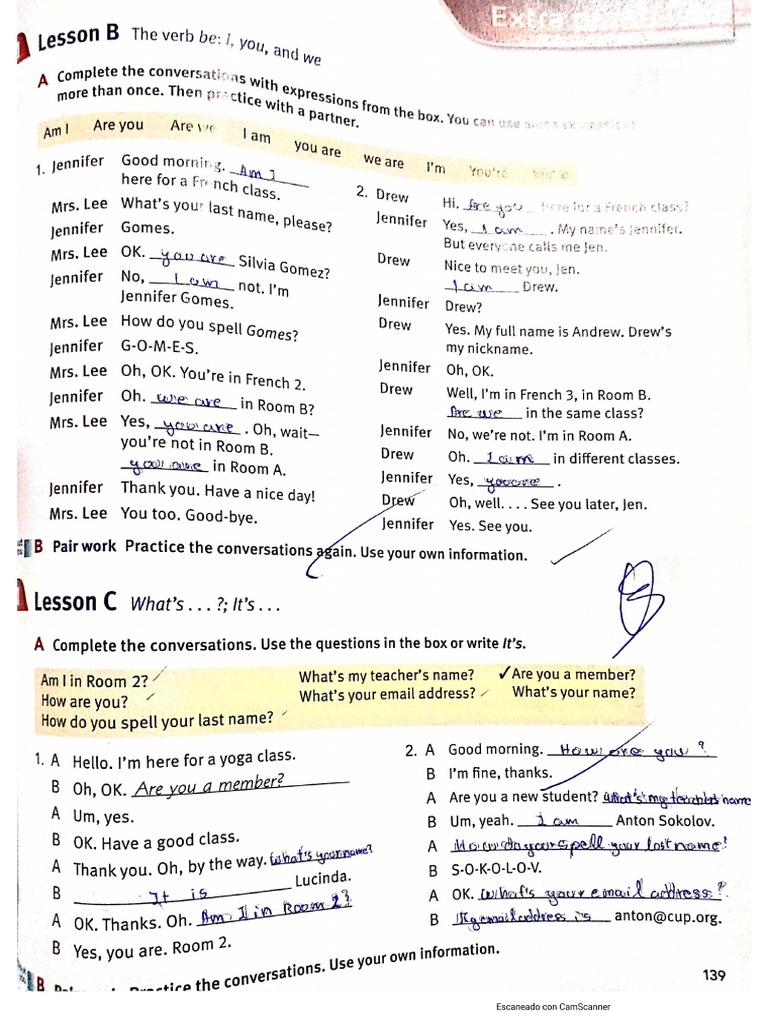 Extra practice
Lesson B The verb be: I, you, and we
A Complete the conversations with expressions from the box. You can use some expressions
more than once. Then practice with a partner.
Am I Are you Are we I am you are we are I'm You're We're
1. Jennifer Good morning. Am I
here for a French class.
Mrs. Lee What's your last name, please?
Jennifer Gomes.
Mrs. Lee OK. you are Silvia Gomez?
Jennifer No, I am not. I'm
Jennifer Gomes.
Mrs. Lee How do you spell Gomes?
Jennifer G-O-M-E-S.
Mrs. Lee Oh, OK. You're in French 2.
Jennifer Oh. we are in Room B?
Mrs. Lee Yes, you are. Oh, wait—
you're not in Room B.
you are in Room A.
Jennifer Thank you. Have a nice day!
Mrs. Lee You too. Good-bye.
2. Drew Hi. Are you here for a French class?
Jennifer Yes, I am. My name's Jennifer.
But everyone calls me Jen.
Drew Nice to meet you, Jen.
I am Drew.
Jennifer Drew?
Drew Yes. My full name is Andrew. Drew's
my nickname.
Jennifer Oh, OK.
Drew Well, I'm in French 3, in Room B.
Are we in the same class?
Jennifer No, we're not. I'm in Room A.
Drew Oh. I am in different classes.
Jennifer Yes, you are.
Drew Oh, well. . . . See you later, Jen.
Jennifer Yes. See you.
B Pair work Practice the conversations again. Use your own information.
Lesson C What's . . . ?; It's . . .
A Complete the conversations. Use the questions in the box or write It's.
Am I in Room 2? What's my teacher's name? ✓Are you a member?
How are you? What's your email address? What's your name?
How do you spell your last name?
1. A Hello. I'm here for a yoga class.
B Oh, OK. Are you a member?
A Um, yes.
B OK. Have a good class.
A Thank you. Oh, by the way. What's your name?
B It is Lucinda.
A OK. Thanks. Oh. Am I in Room 2?
B Yes, you are. Room 2.
2. A Good morning. How are you?
B I'm fine, thanks.
A Are you a new student? name
B Um, yeah. I am Anton Sokolov.
A How do you spell your last name?
B S-O-K-O-L-O-V.
A OK. What's your email address?
B email address is anton@cup.org.
B Practice the conversations. Use your own information.
139
Escaneado con CamScanner